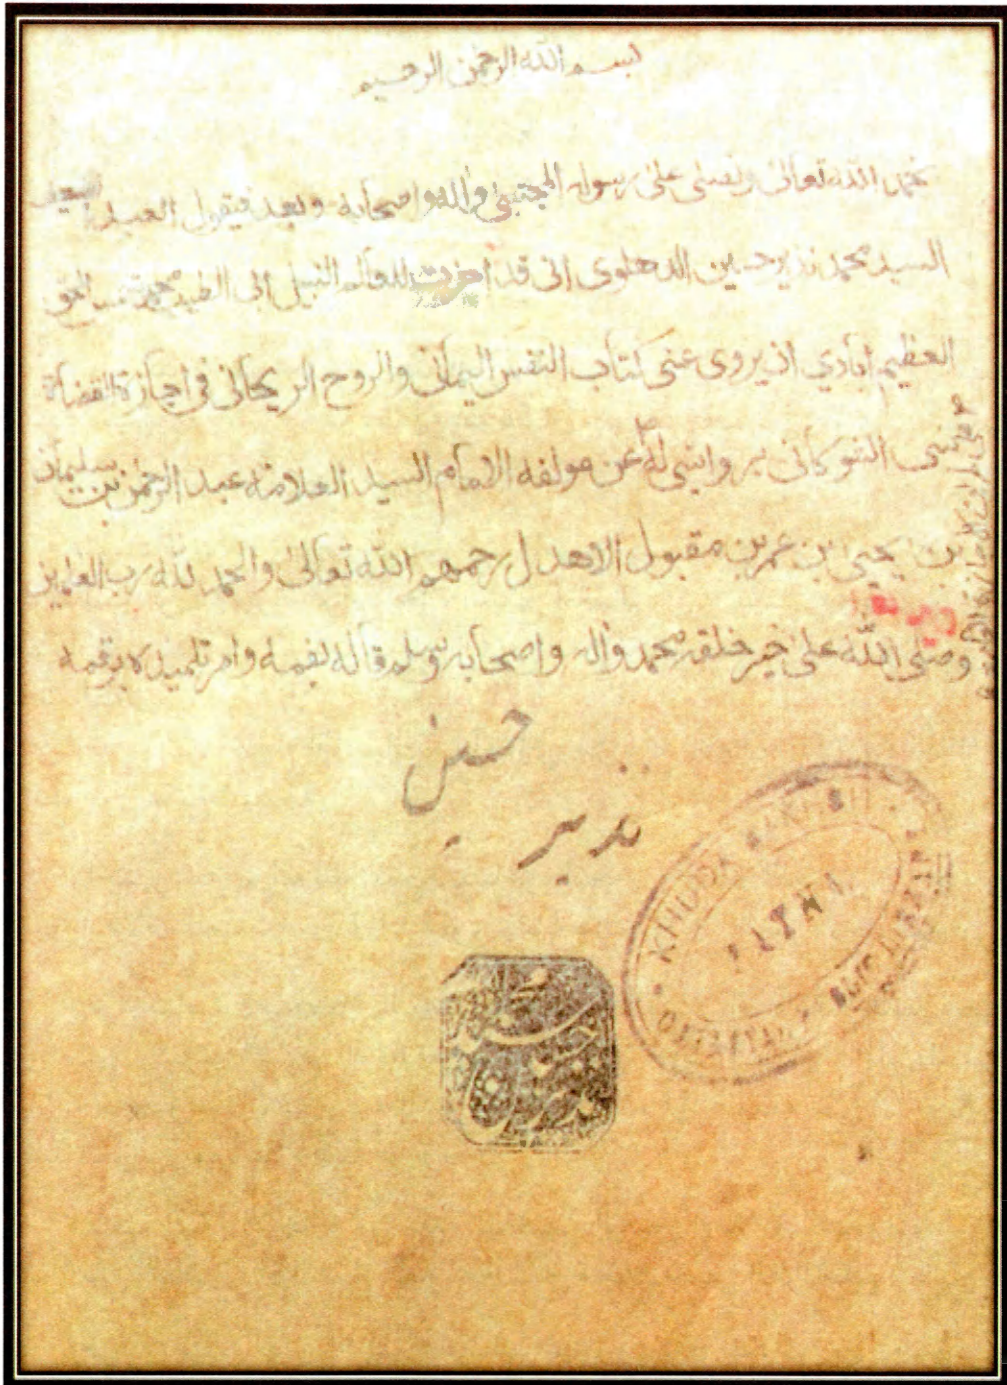 بسم الله الرحمن الرحيم
نحمد الله تعالى ونصلى على رسوله المجتبى وآله واصحابه وبعد فيقول العبد الضعيف
السيد محمد نذير حسين الدهلوى انى قد اجزت للعالم النبيل ابى الطيب محمد شمس الحق
العظيم ابادي ان يروى عنى كتاب النفس اليمانى والروح الريحانى فى اجازة القضاة
بنى الشوكانى بروايتى له عن مولفه الامام السيد العلامة عبد الرحمن بن سليمان
بن يحيى بن عمر بن مقبول الاهدل رحمهم الله تعالى والحمد لله رب العلمين
وصلى الله على خير خلقه محمد واله واصحابه وسلم قاله بفمه وامر تلميذه برقمه
نذير حسين
KHUDA BAKHSH
PATNA
ORIENTAL PUBLIC LIBRARY